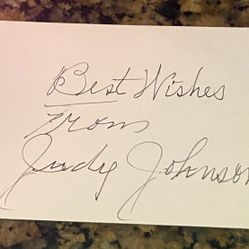 Best Wishes
From
Judy Johnson